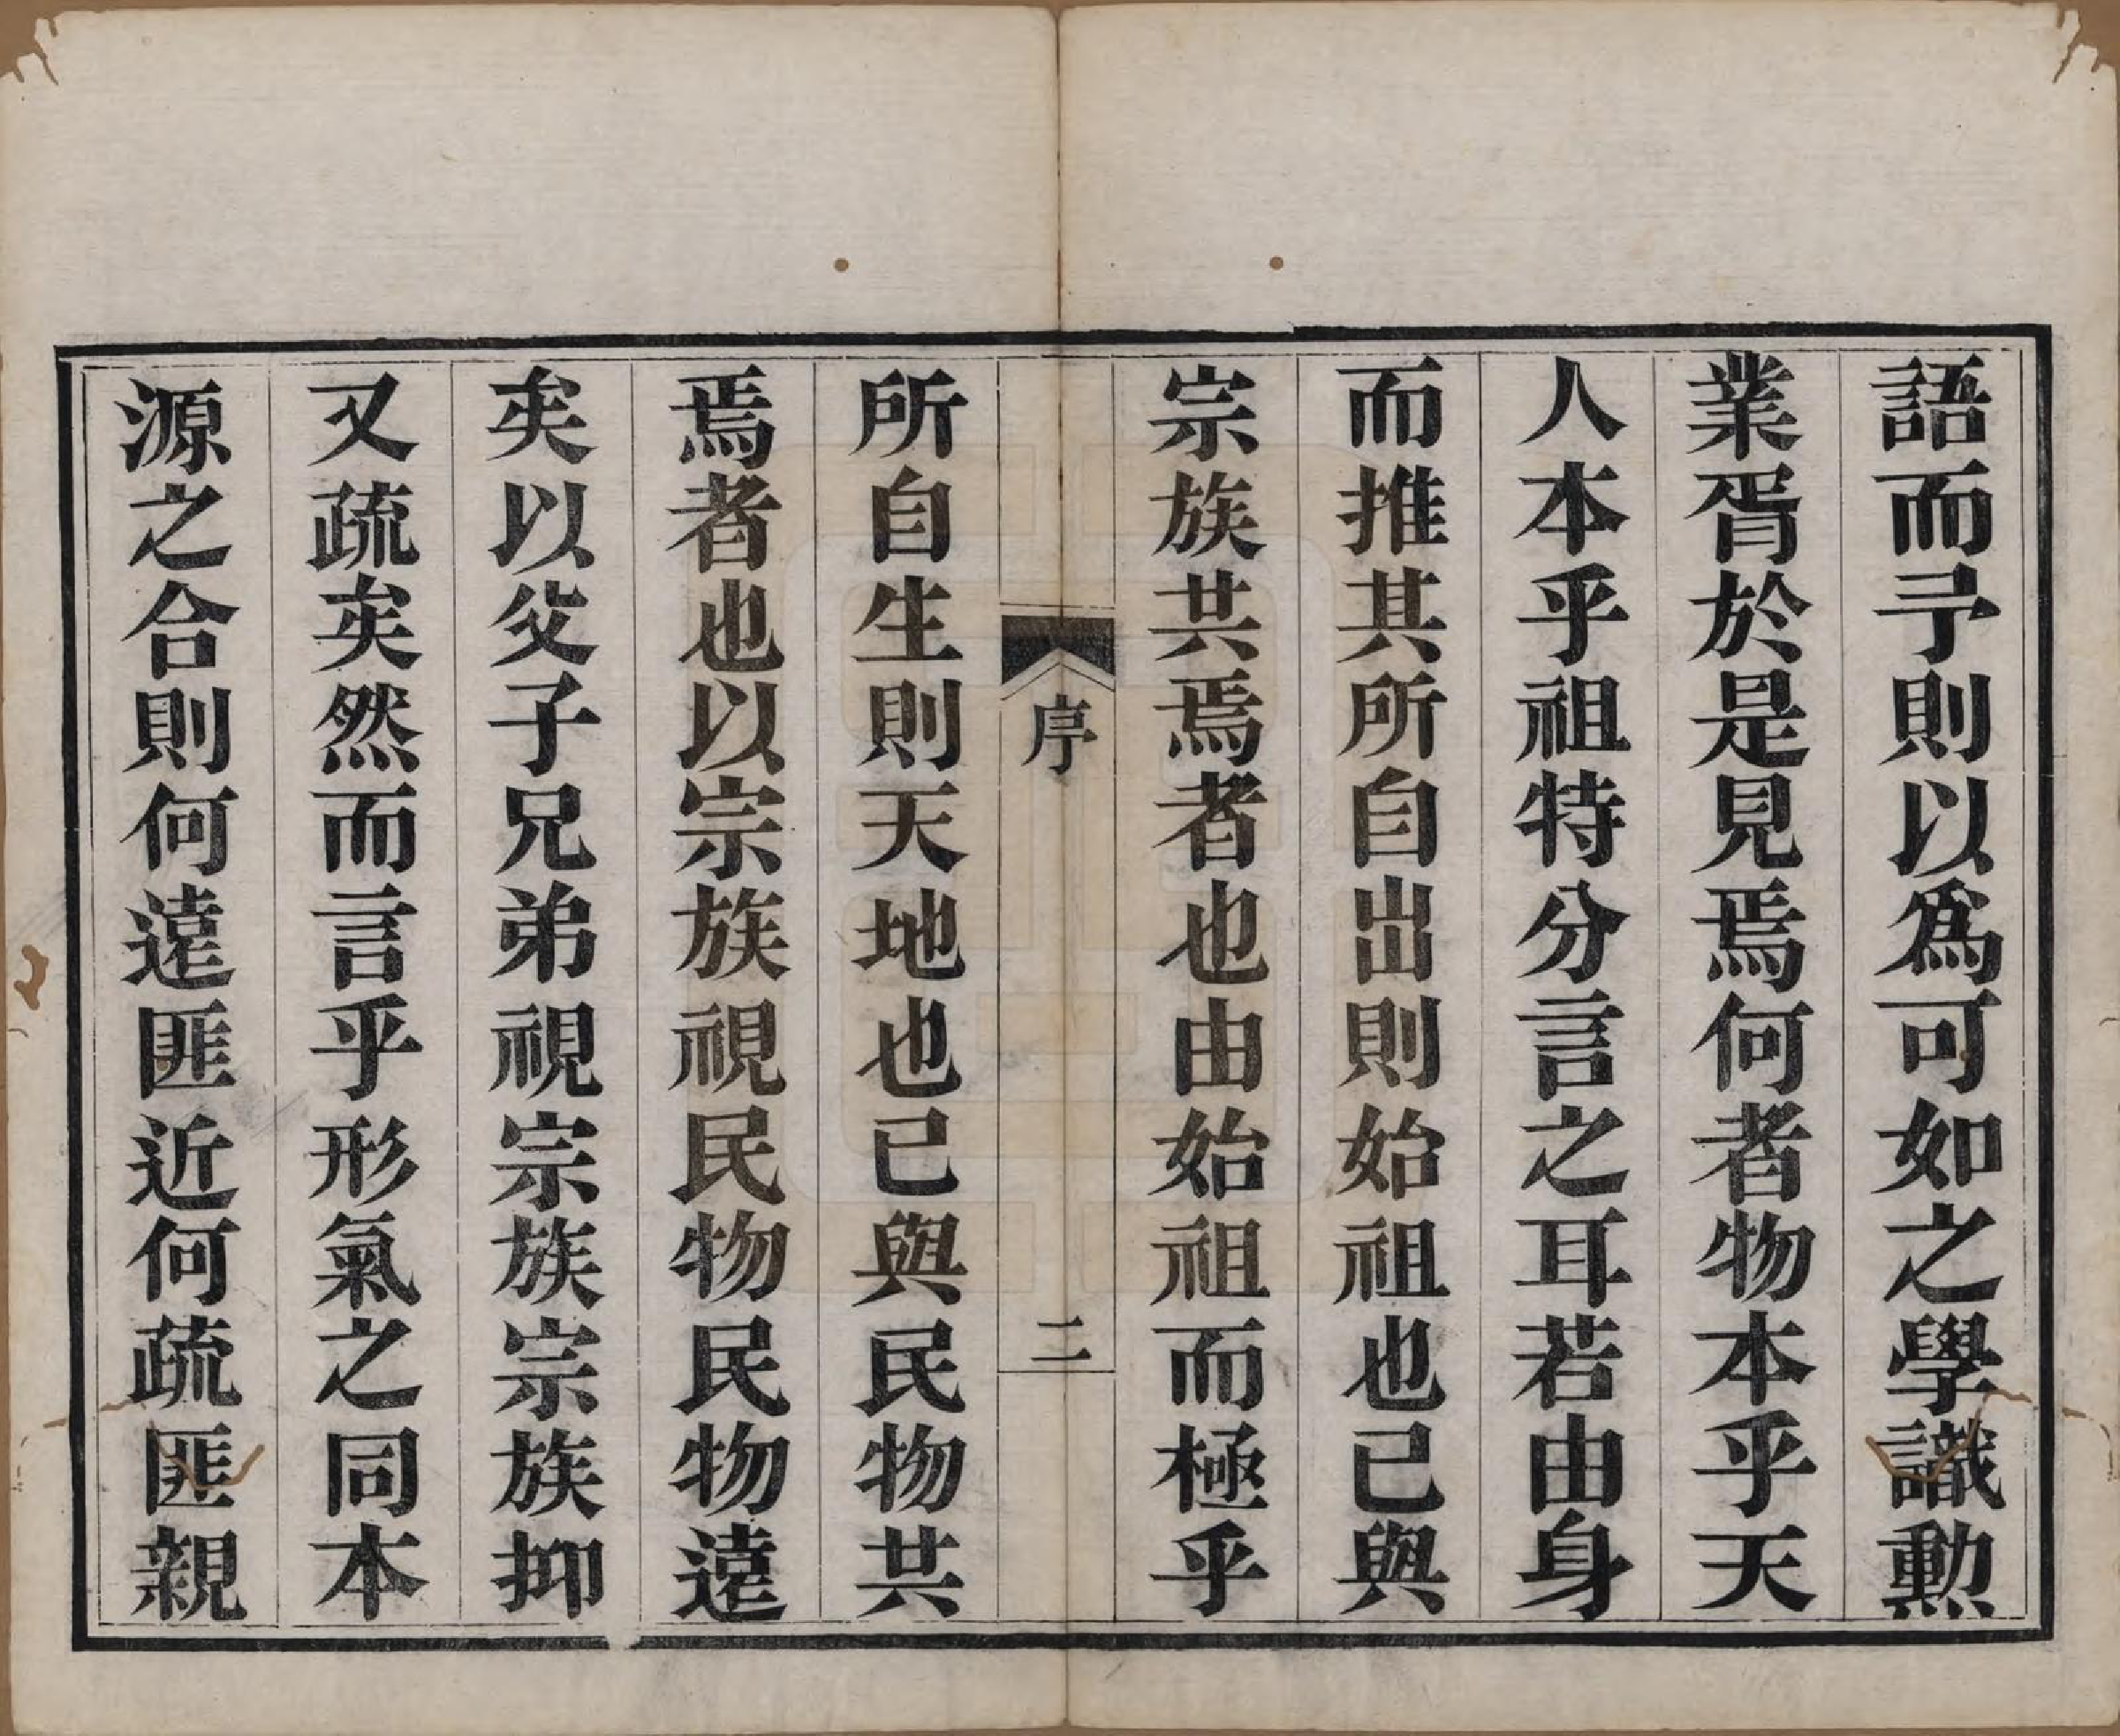 語而予則以爲可如之學識勳
業胥於是見焉何者物本乎天
人本乎祖特分言之耳若由身
而推其所自出則始祖也已與
宗族共焉者也由始祖而極乎
序
二
所自生則天地也已與民物共
焉者也以宗族視民物民物遠
矣以父子兄弟視宗族宗族抑
又疏矣然而言乎形氣之同本
源之合則何遠匪近何疏匪親